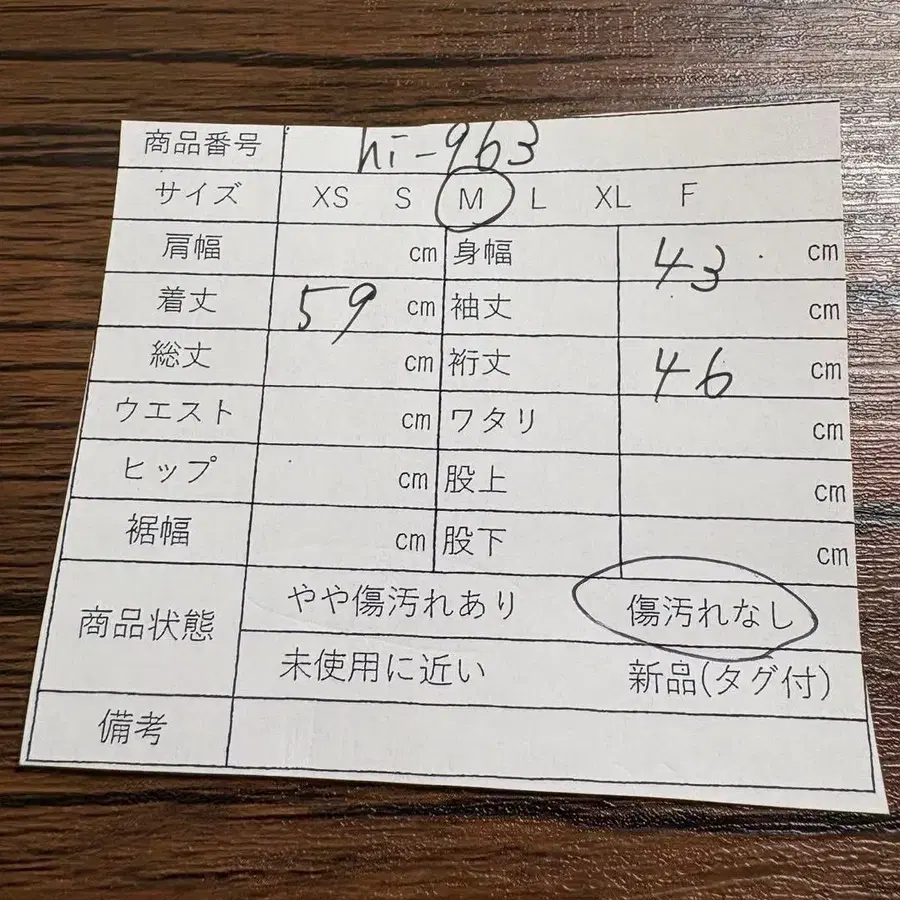 商品番号 hi-963
サイズ XS S M L XL F
肩幅 cm 身幅 43 cm
着丈 59 cm 袖丈 cm
総丈 cm 裄丈 46 cm
ウエスト cm ワタリ cm
ヒップ cm 股上 cm
裾幅 cm 股下 cm
商品状態 やや傷汚れあり 傷汚れなし
未使用に近い 新品(タグ付)
備考